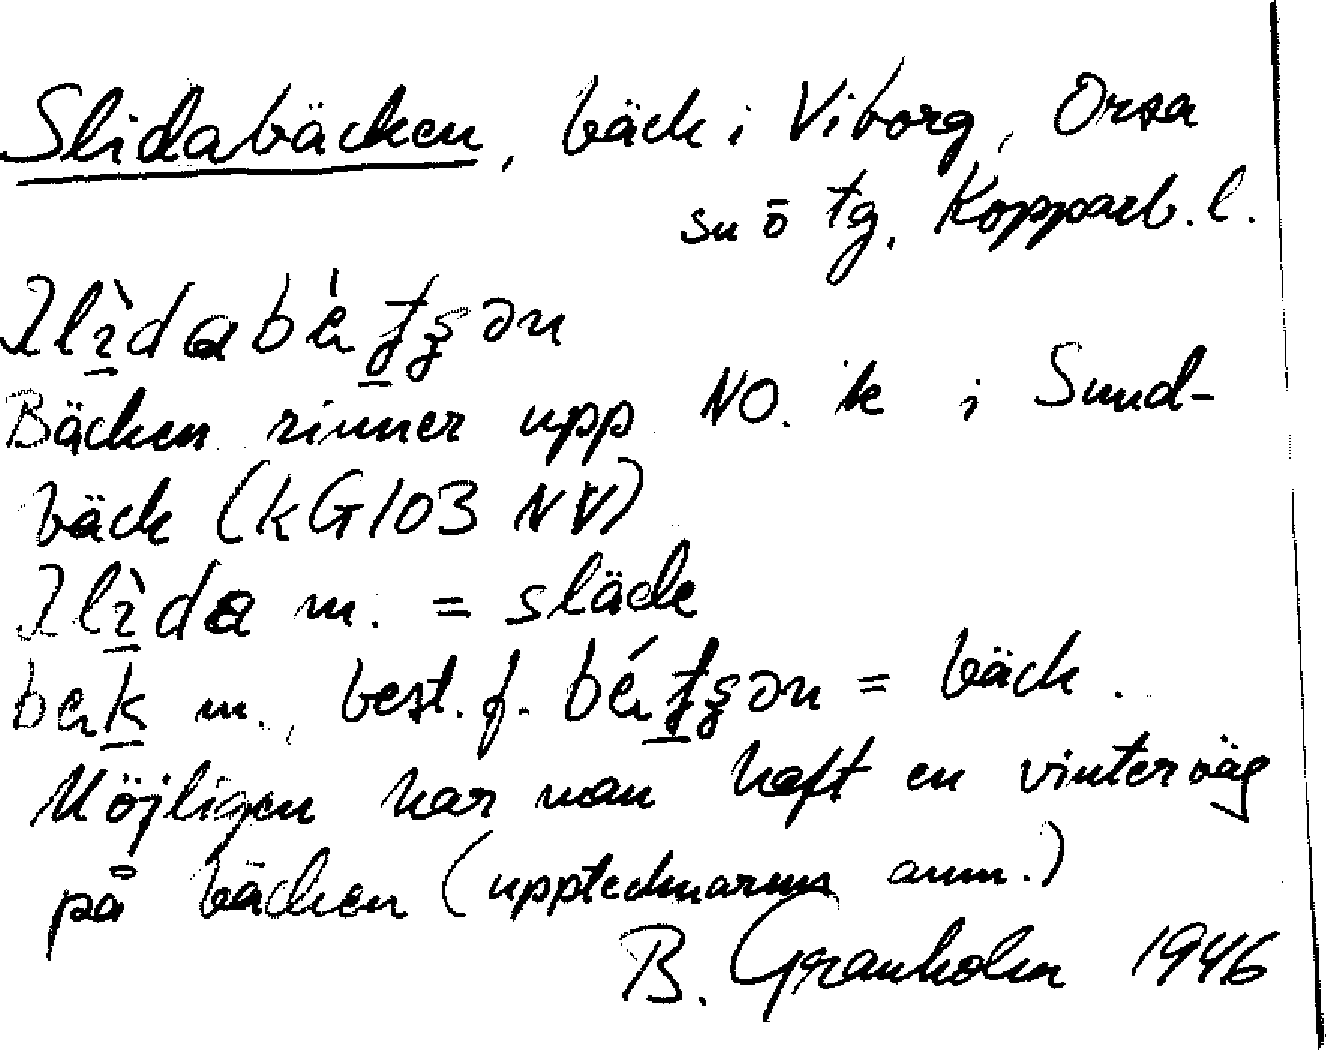 Slidabäcken, bäck i Viborg, Orsa
sn ö tg, Kopparb. l.
Bäcken rinner upp NO. k i Sund-
bäck (kG103 NV)
m. = släde
m., best. f. = bäck.
Möjligen har man haft en vinterväg
på bäcken (upptecknarens anm.)
B. Granholm 1946